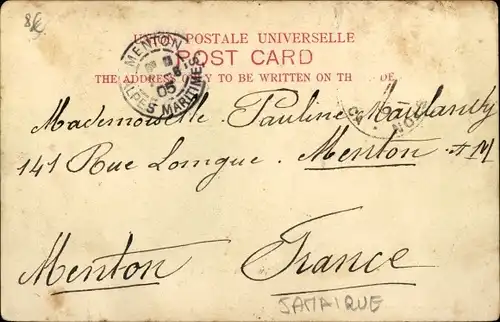 8€
UNION POSTALE UNIVERSELLE
POST CARD
THE ADDRESS ONLY TO BE WRITTEN ON THIS SIDE.
MENTON
8
05
ALPES MARITIMES
Mademoiselle Pauline Maulandy
141 Rue Longue. Menton A M
Menton France
JAMAIQUE